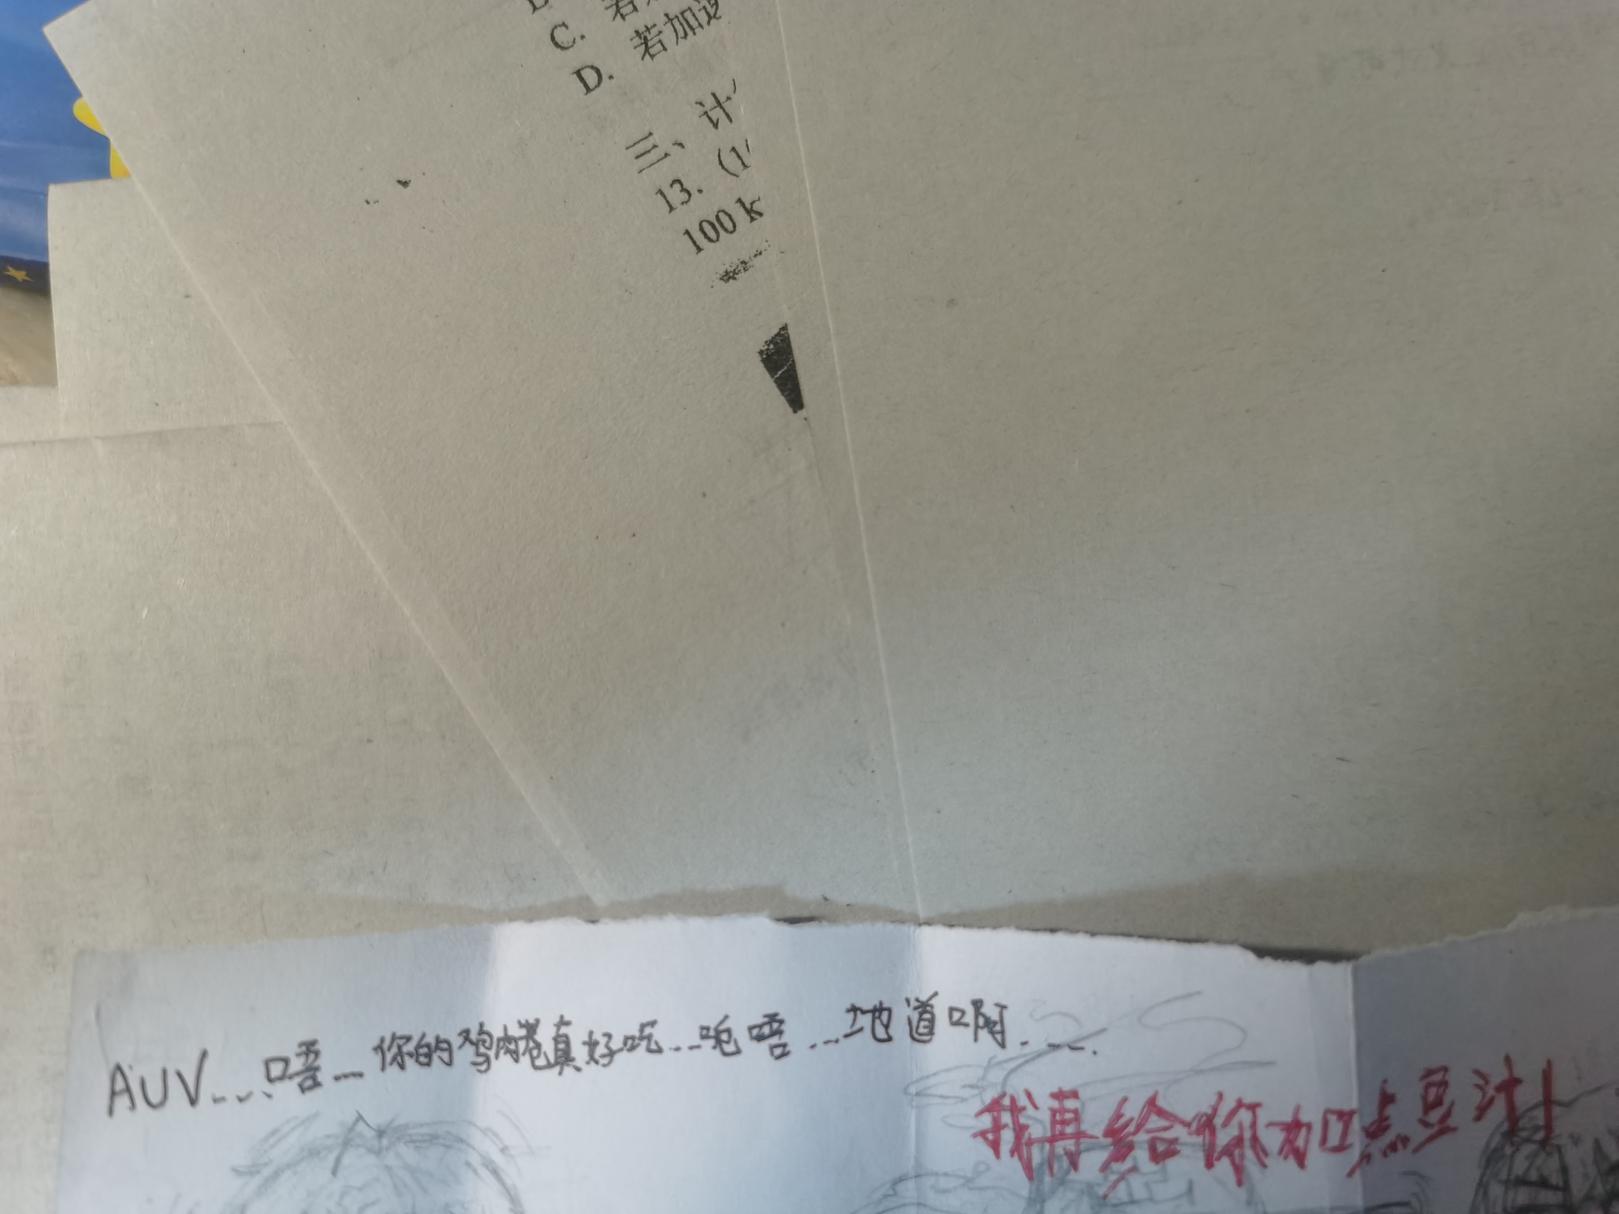 C. 若
D. 若加速
三、计
13. (1
100 k
AUV......唔...你的鸡肉卷真好吃...咆唔...地道啊......
我再给你加点豆汁!